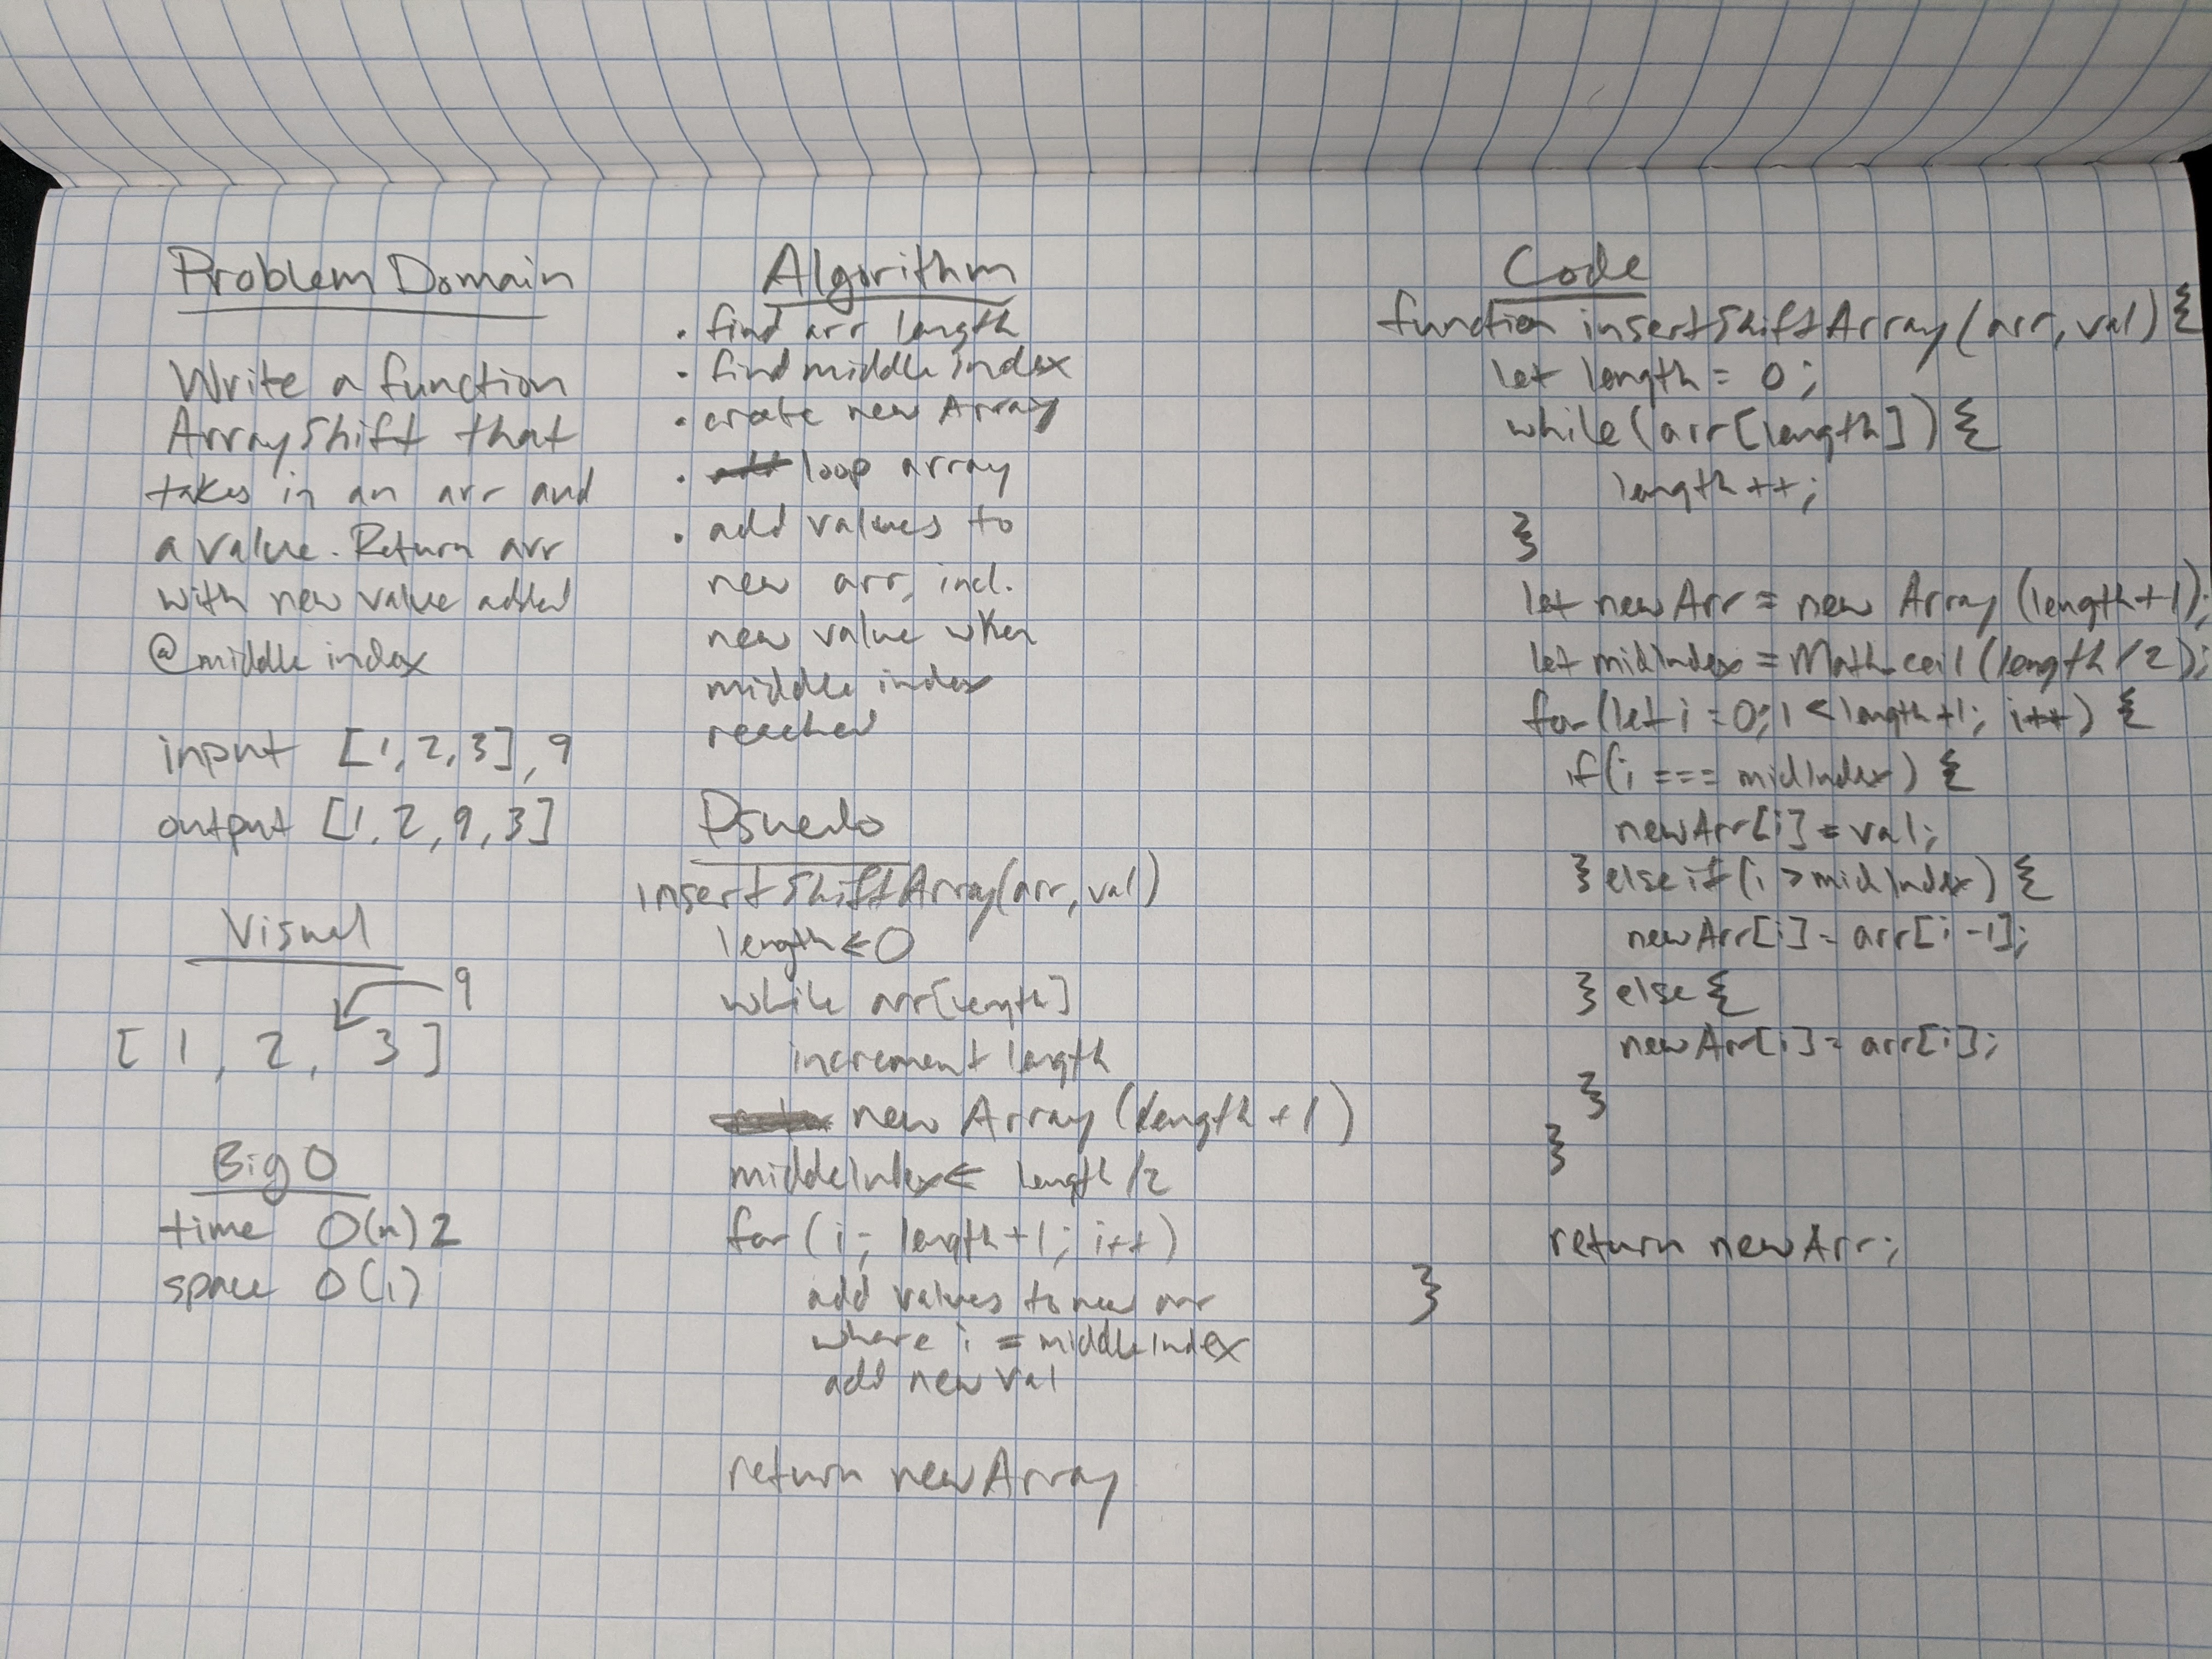 Problem Domain
Write a function
ArrayShift that
takes in an arr and
a value. Return arr
with new value added
@ middle index
input [1,2,3], 9
output [1,2,9,3]
Visual
9
[ 1 , 2, 3 ]
Big O
time O(n)2
space O(1)
Algorithm
• find arr length
• find middle index
• create new Array
• add loop array
• add values to
new arr, incl.
new value when
middle index
reached
Psuedo
insertShiftArray(arr, val)
length ← 0
while arr[length]
increment length
new Array (length + 1)
middeIndex ← length /2
for (i; length+1; i++)
add values to new arr
where i = middleIndex
add new val
return newArray
Code
function insertShiftArray(arr, val) {
let length = 0;
while (arr[length]) {
length ++;
}
let newArr = new Array (length+1);
let midIndex = Math.ceil(length /2);
for (let i = 0; i < length+1; i++) {
if (i === midIndex) {
newArr[i] = val;
} else if (i > midIndex) {
newArr[i] = arr[i-1];
} else {
newArr[i] = arr[i];
}
}
return newArr;
}